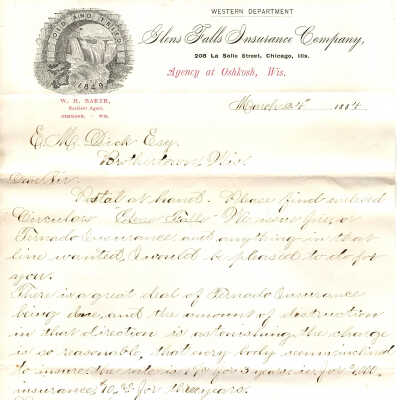 WESTERN DEPARTMENT
Glens Falls Insurance Company,
206 La Salle Street, Chicago, Ills.
OLD AND TRIED
1849
Agency at Oshkosh, Wis.
Resident Agent,
OSHKOSH, - WIS.
March 24" 1884
E. M. Dick Esq.
Brothertown Wis
Dear Sir
Postal at hand. Please find enclosed
Circulars Glens Falls We issue fire or
Tornado Insurance and anything in that
line wanted, would be pleased to do for
you.
There is a great deal of Tornado Insurance
being done, and the amount of destruction
in that direction is astonishing the charge
is so reasonable, that every body seems inclined
to insure the rate is 1% for 3 years
insurance for three years.